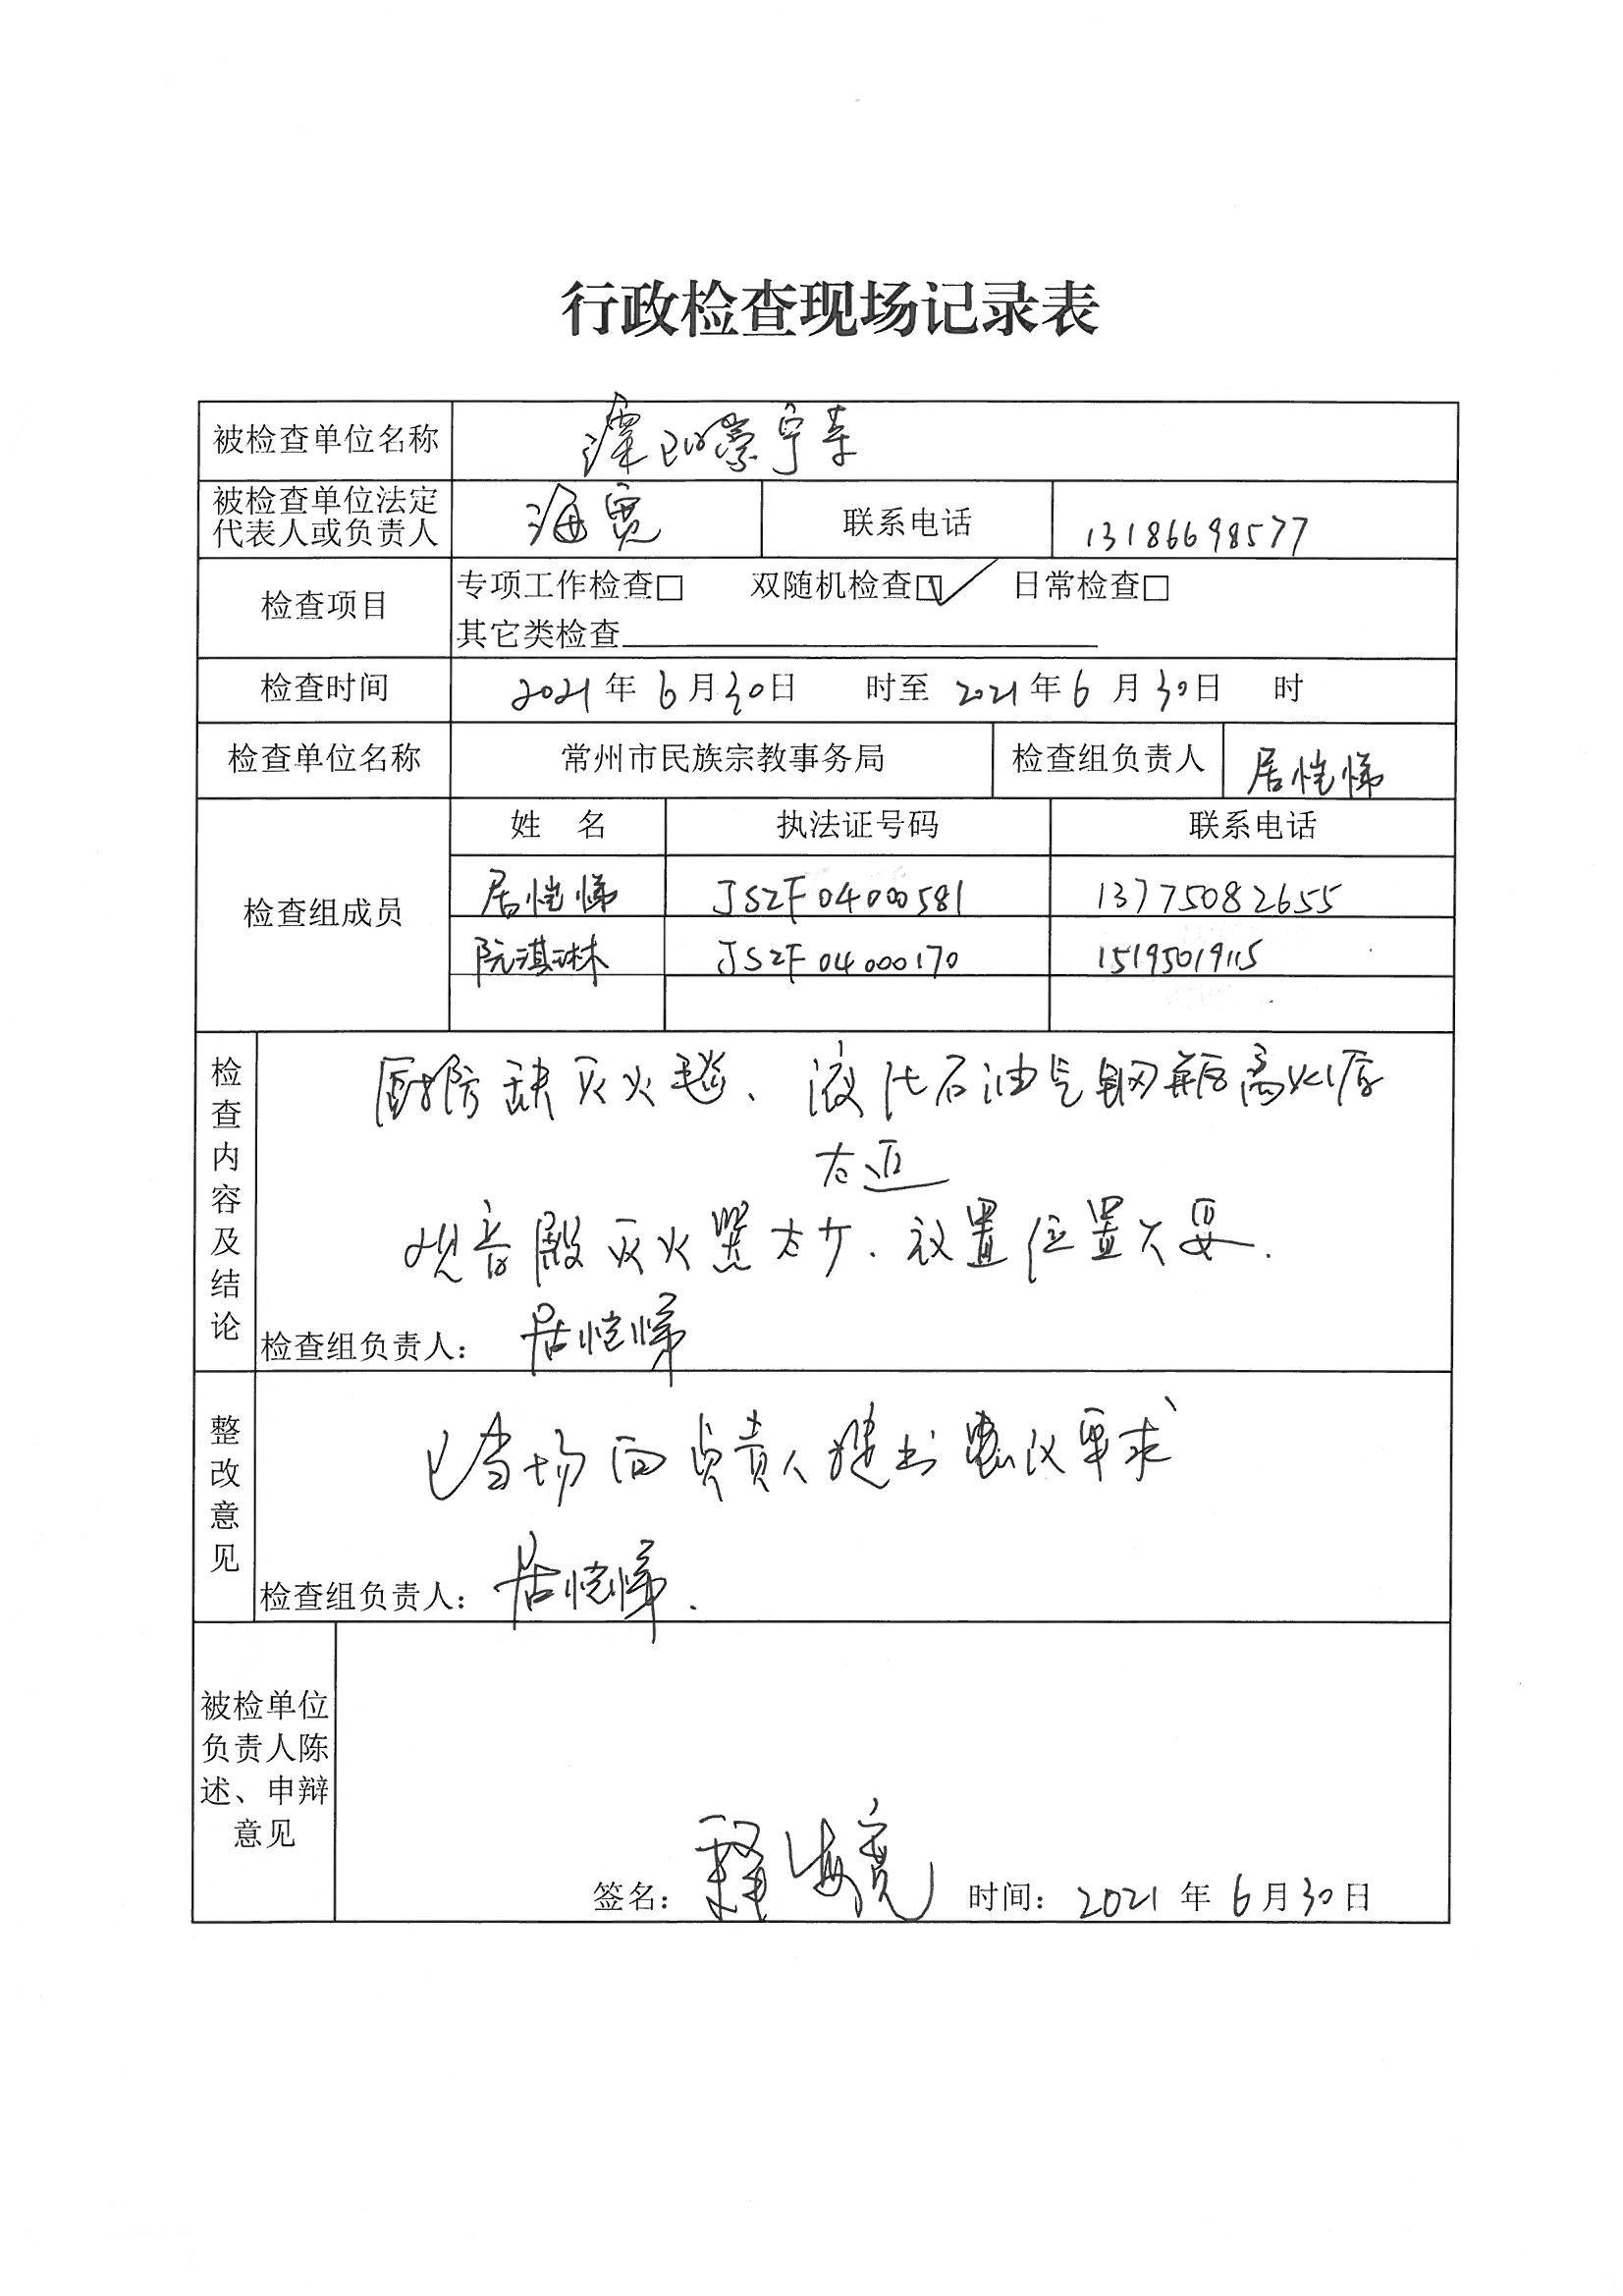 行政检查现场记录表
被检查单位名称 崇宁寺
被检查单位法定代表人或负责人 海宽 联系电话 13186698577
检查项目 专项工作检查□ 双随机检查☑ 日常检查□
其它类检查
检查时间 2021年6月30日 时至2021年6月30日 时
检查单位名称 常州市民族宗教事务局 检查组负责人 居恺悌
检查组成员 姓 名 执法证号码 联系电话
居恺悌 JSZF04000581 13775082655
阮淇琳 JSZF04000170 15195019115
检查内容及结论
厨房缺灭火毯、液化石油气钢瓶离火源
太近
观音殿灭火器太少.放置位置不妥.
检查组负责人: 居恺悌
整改意见
已当场向负责人提出 议要求
检查组负责人: 居恺悌.
被检单位负责人陈述、申辩意见
签名: 释海宽 时间: 2021年6月30日